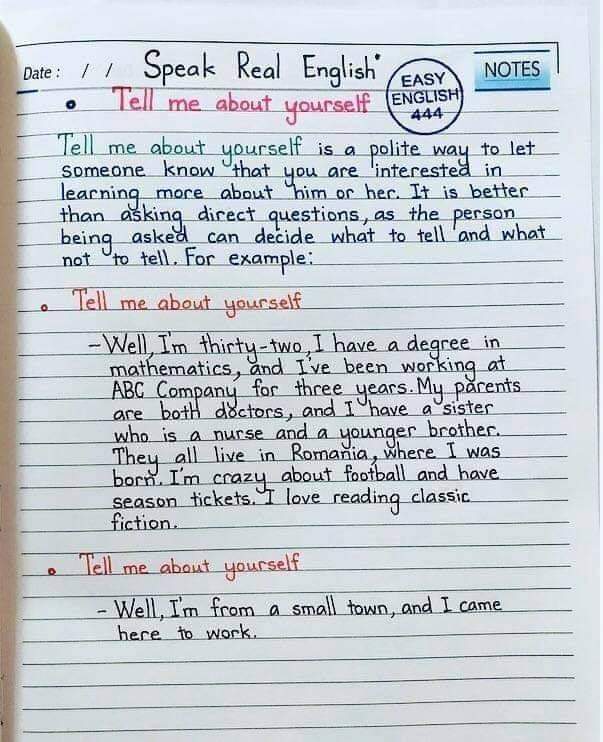 Date : / / Speak Real English
NOTES
EASY
ENGLISH
444
Tell me about yourself
Tell me about yourself is a polite way to let
someone know that you are interested in
learning more about him or her. It is better
than asking direct questions, as the person
being asked can decide what to tell and what
not to tell. For example:
Tell me about yourself
- Well, I'm thirty-two, I have a degree in
mathematics, and I've been working at
ABC Company for three years. My parents
are both doctors, and I have a sister
who is a nurse and a younger brother.
They all live in Romania, where I was
born. I'm crazy about football and have
season tickets. I love reading classic
fiction.
Tell me about yourself
- Well, I'm from a small town, and I came
here to work.